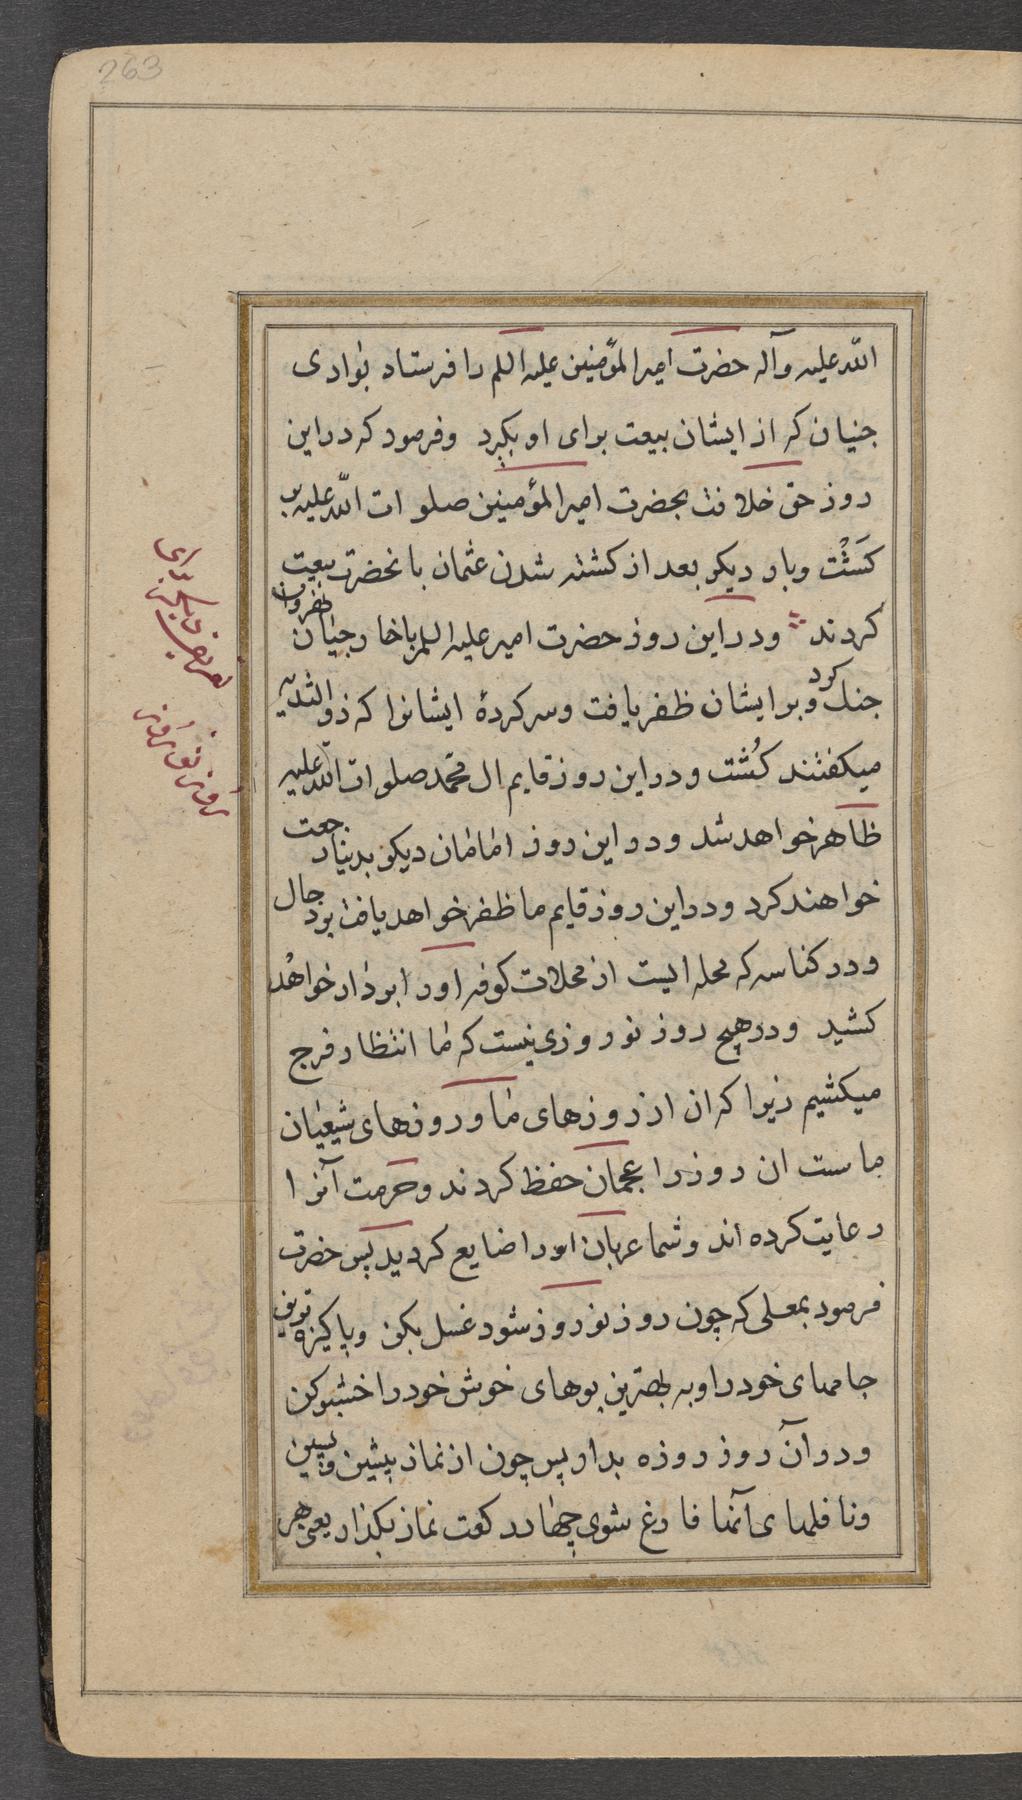 263
الله علیه وآله حضرت امیر المؤمنین علیه اللم را فرستاد بوادی
جنیان که از ایشان بیعت برای او بکیرد وفرمود که دراین
روز حق خلافت بحضرت امیر المؤمنین صلوات الله علیه بر
کشت وبار دیکر بعد از کشته شدن عثمان بانحضرت بیعت
کردند ودراین روز حضرت امیر علیه اللم باخارجیان نهروان
جنک کرد وبر ایشان ظفر یافت وسرکردهٔ ایشانرا که ذو الثدیه
میکفتند کُشت ودراین روز قایم ال محمد صلوات الله علیه
ظاهر خواهد شد ودر این روز امامان دیکر بدنیا رجعت
خواهند کرد ودراین روز قایم ما ظفر خواهد یافت بر دجال
ودر کناسه که محله ایست از محلات کوفه اورا بردار خواهد
کشید ودرهیچ روز نوروزی نیست که ما انتظار فرج
میکشیم زیرا که ان از روزهای ما وروزهای شیعیان
ماست ان روز را عجمان حفظ کردند وحرمت آنرا
رعایت کرده اند وشما عربان انرا ضایع کردید پس حضرت
فرمود بمعلی که چون روز نوروز شود غسل بکن وپاکیزه ترین
جامهای خود را وبه بهترین بوهای خوش خود را خشبو کن
ودر آن روز روزه بدار پس چون از نماز پیشین وپسین
ونافلهای آنها فارغ شوی چهار رکعت نماز بکذار یعنی هر
روز نوروز